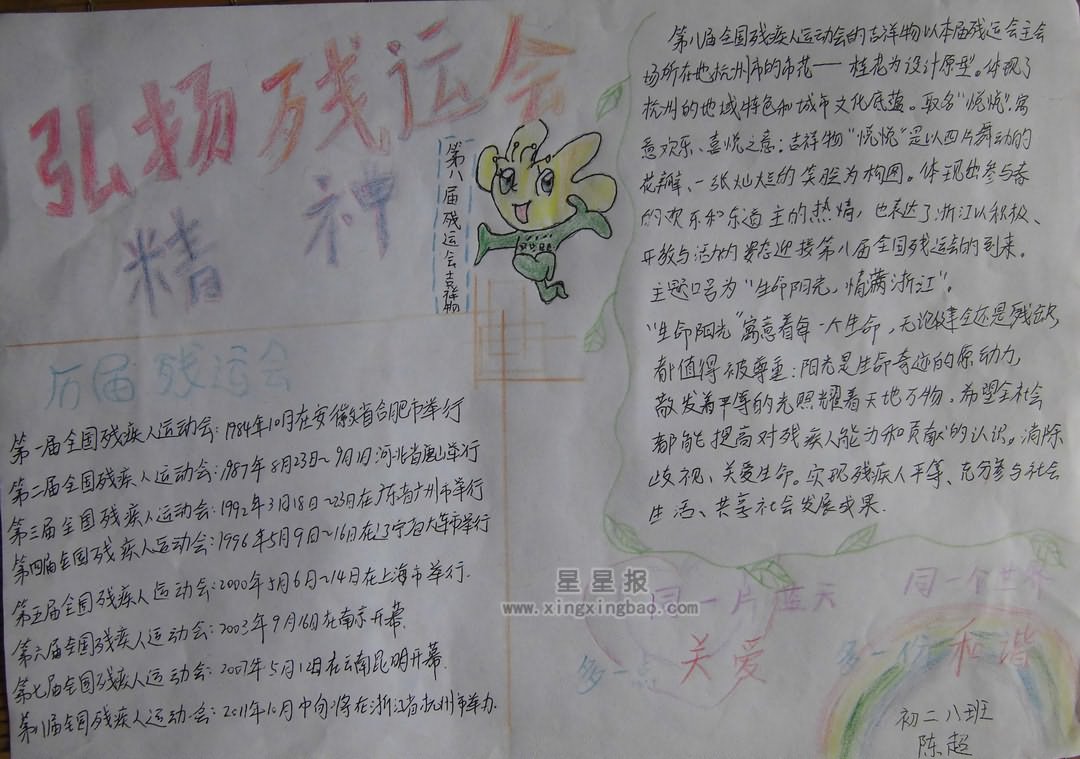 弘扬残运会
精神
第八届残运会吉祥物
历届残运会
第一届全国残疾人运动会:1984年10月在安徽省合肥市举行
第二届全国残疾人运动会:1987年8月23日~9月1日河北省唐山举行
第三届全国残疾人运动会:1992年3月18日~23日在广东省广州市举行
第四届全国残疾人运动会:1996年5月9日~16日在辽宁省大连市举行
第五届全国残疾人运动会:2000年5月6日~14日在上海市举行.
第六届全国残疾人运动会:2003年9月16日在南京开幕.
第七届全国残疾人运动会:2007年5月12日在云南昆明开幕.
第八届全国残疾人运动会:2011年10月中旬将在浙江省杭州市举办.
第八届全国残疾人运动会的吉祥物以本届残运会主会
场所在地杭州市的市花——桂花为设计原型。体现了
杭州的地域特色和城市文化底蕴。取名“悦悦”,寓
意欢乐、喜悦之意;吉祥物“悦悦”是以四片舞动的
花瓣、一张灿烂的笑脸为构图。体现出参与者
的欢乐和东道主的热情,也表达了浙江以积极、
开放与活力的姿态迎接第八届全国残运会的到来。
主题口号为“生命阳光,情满浙江”。
“生命阳光”寓意着每一个生命,无论健全还是残缺,
都值得被尊重;阳光是生命奇迹的原动力,
散发着平等的光照耀着天地万物,希望全社会
都能提高对残疾人能力和贡献的认识。消除
歧视、关爱生命。实现残疾人平等、充分参与社会
生活、共享社会发展成果.
星星报
www.xingxingbao.com
同一片蓝天 同一个世界
多一点关爱 多一份和谐
初二八班
陈超